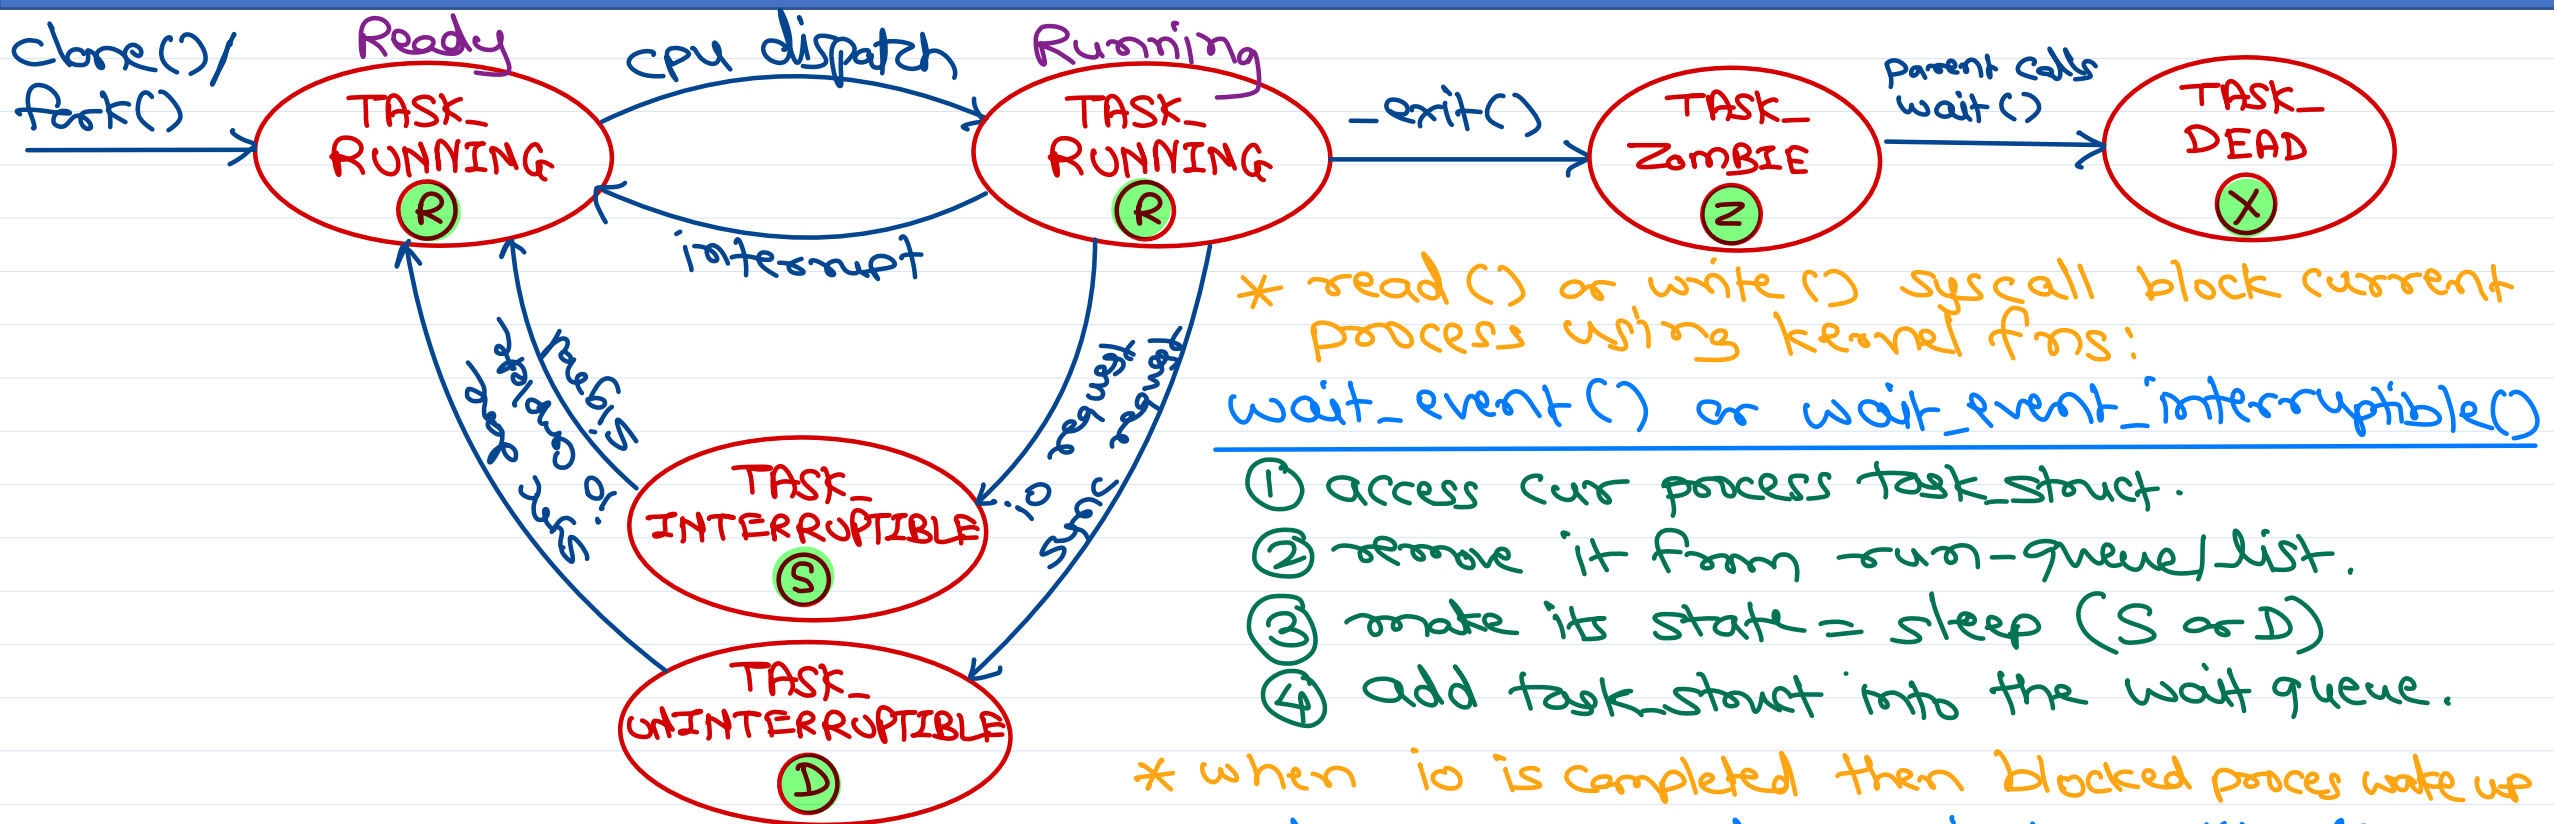 clone()/
fork()
Ready
TASK_
RUNNING
R
cpu dispatch
interrupt
Running
TASK_
RUNNING
R
_exit()
TASK_
ZOMBIE
Z
parent calls
wait()
TASK_
DEAD
X
signal
io request
sync request
TASK_
INTERRUPTIBLE
S
TASK_
UNINTERRUPTIBLE
D
* read() or write() syscall block current
process using kernel fns:
wait_event() or wait_event_interruptible()
① access cur process task_struct.
② remove it from run-queue/list.
③ make its state = sleep (S or D)
④ add task_struct into the wait queue.
* when io is completed then blocked proces wake up